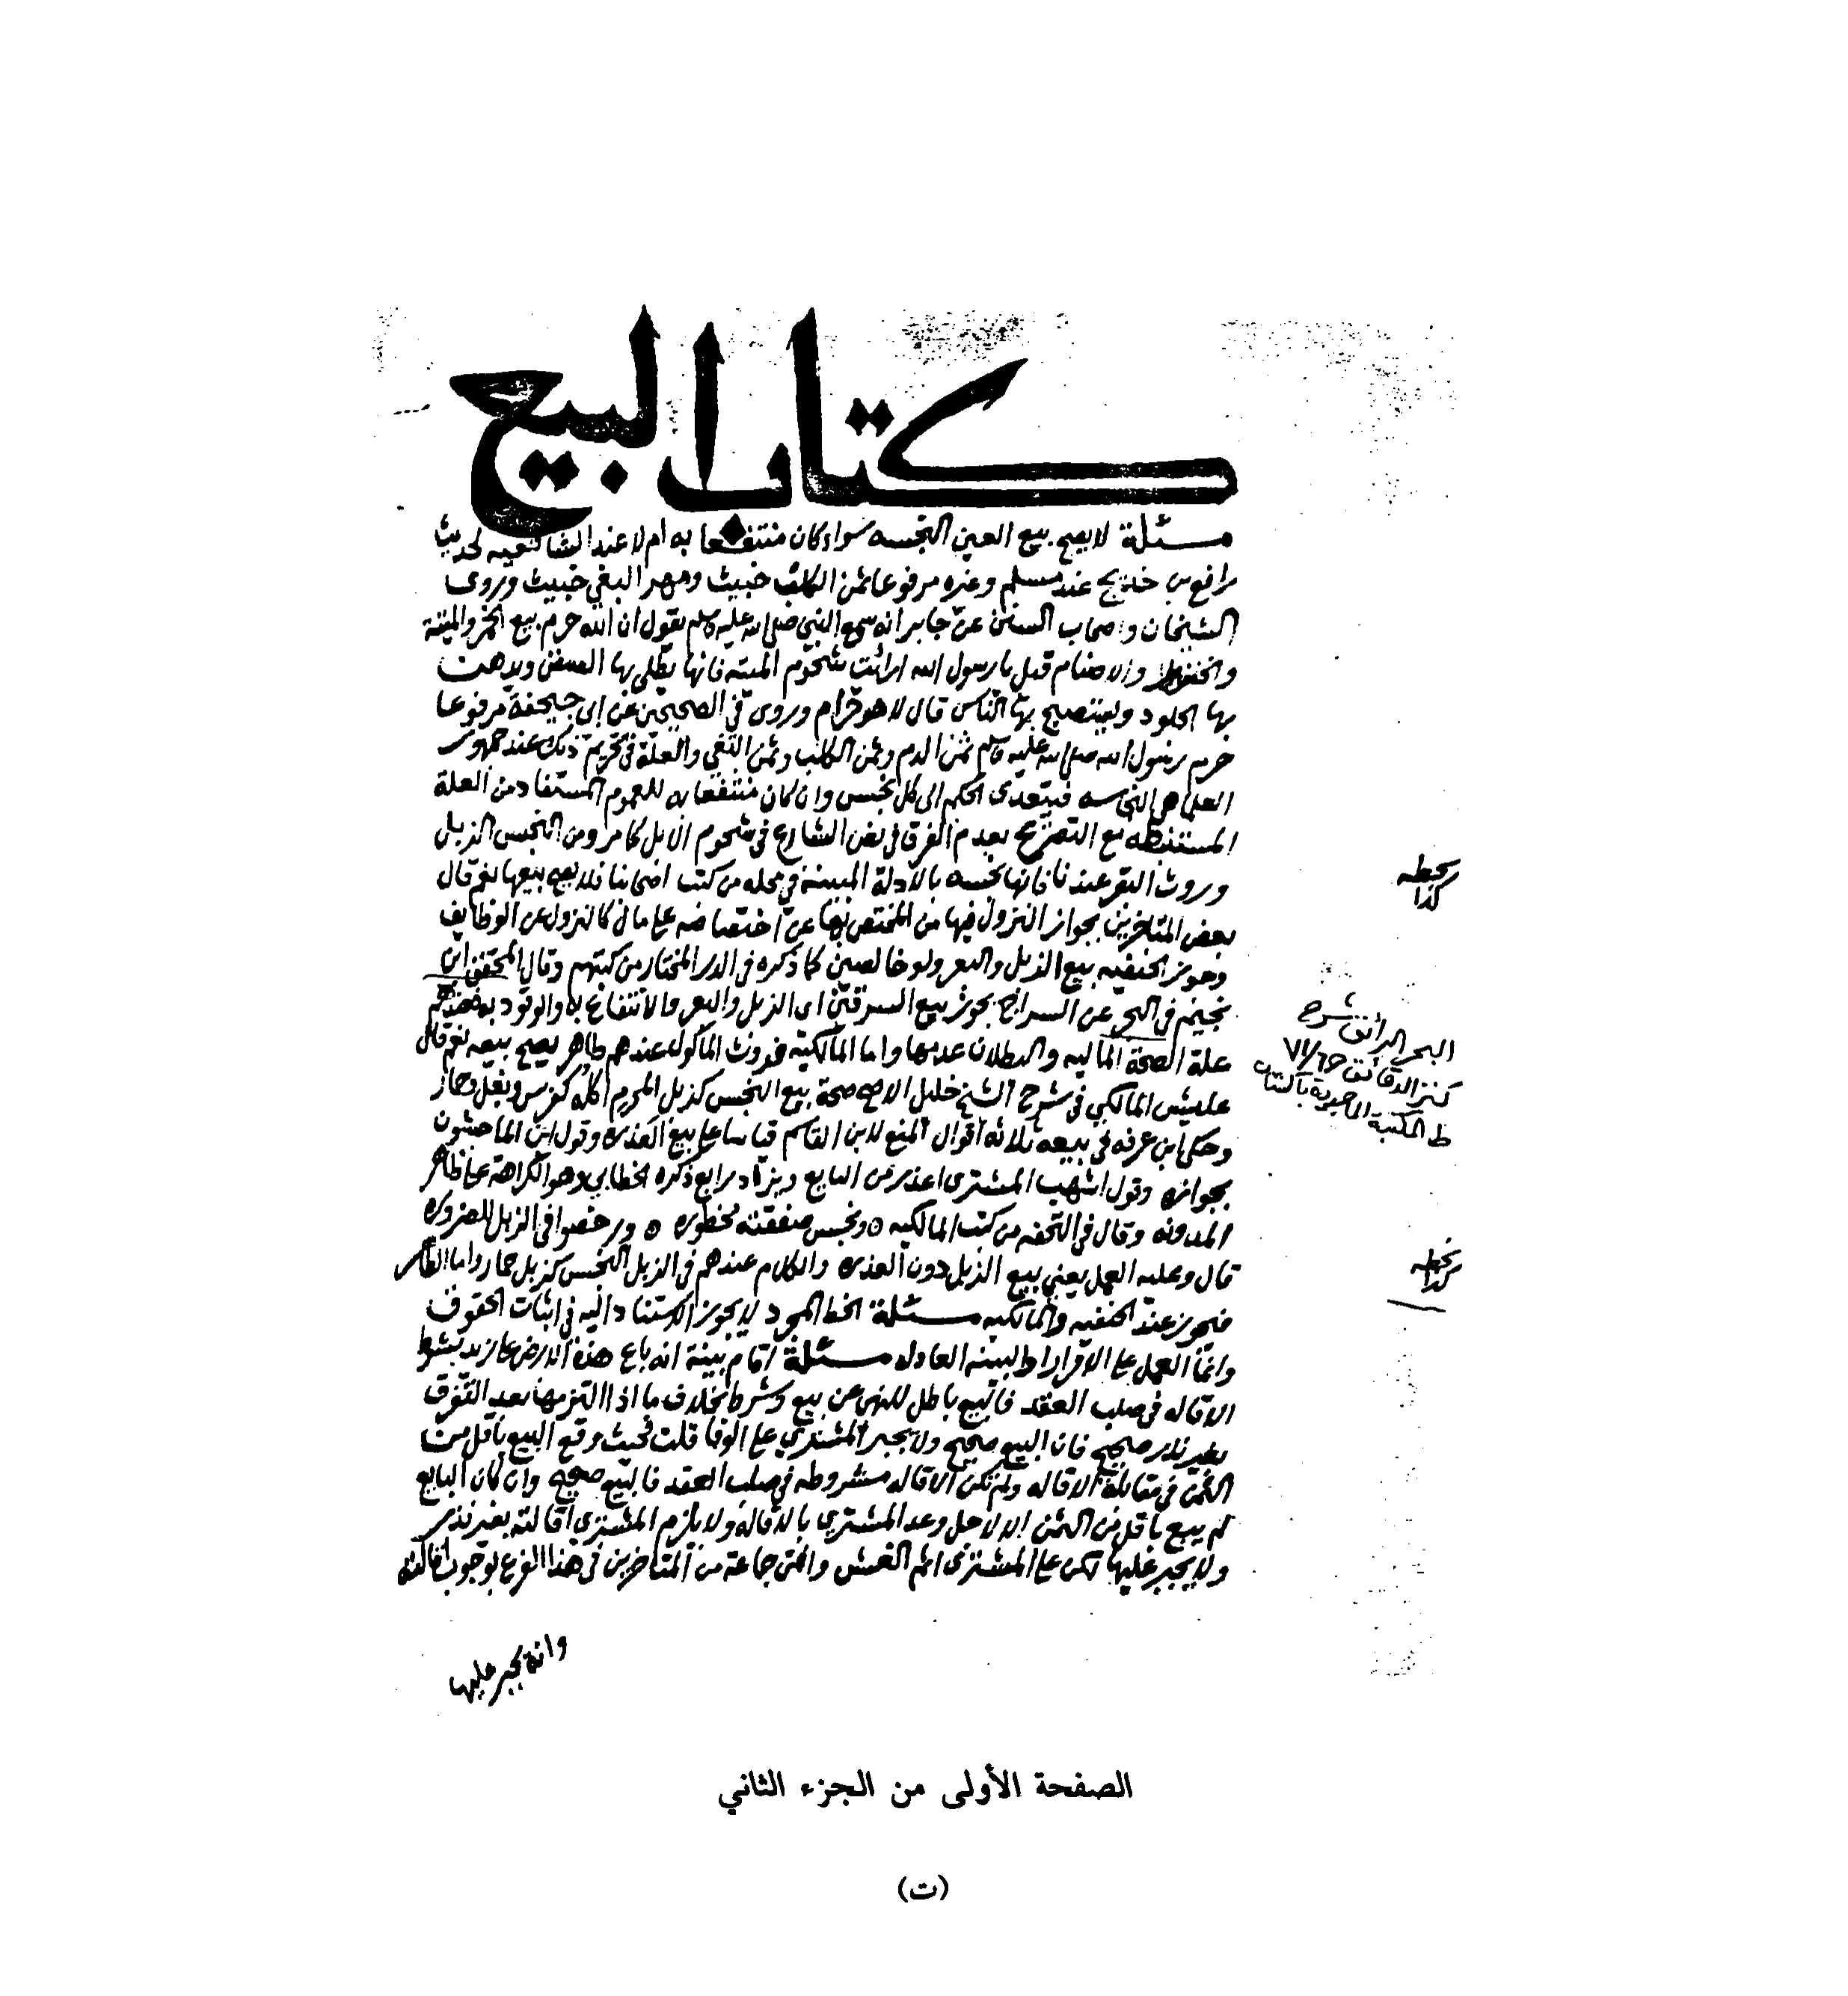 كتاب البيع
مسئلة لا يصح بيع العين النجسه سواء كان منتفعا به ام لا عند الشافعيه لحديث
رافع بن خديج عند مسلم وغيره مرفوعا ثمن الكلب خبيث ومهر البغي خبيث وروى
الشيخان واصحاب السنن عن جابر انه سمع النبي صلى الله عليه وسلم يقول ان الله حرم بيع الخمر والميتة
والخنزير والاصنام قيل يا رسول الله ارايت شحوم الميته فانها يطلى بها السفن ويدهن
بها الجلود ويستصبح بها الناس قال لا هو حرام وروى في الصحيحين عن ابي جحيفة مرفوعا
حرم رسول الله صلى الله عليه وسلم ثمن الدم وثمن الكلب وثمن البغي والعلة في تحريم ذلك عند جمهور
العلما هي النجاسه فيتعدى الحكم الى كل نجس وان كان منتفعا به للعموم المستفاد من العلة
المستنبطه مع التصريح بعدم الفرق في نص الشارع في شحوم كما مر ومن النجس الزبل
وروث البقر عندنا فانها نجسه بالادلة المبينة في محله من كتب اصحابنا فلا يصح بيعها نعم قال
بعض المتاخرين بجواز النزول فيها من المختص بها عن اختصاصه على مال كالنزول عن الوظايف
وجوز الحنفيه بيع الزبل والبعر ولو خالصين كما ذكره في الدر المختار من كتبهم وقال المحقق ابن
نجيم في البحر عن السراج يجوز بيع السرقين اي الزبل والبعر والانتفاع به والوقود به فعندهم
علة الصحة الماليه والبطلان عدمها واما المالكية فروث الماكول عندهم طاهر يصح بيعه نعم قال
عليش المالكي في شرح الشيخ خليل الاصح صحة بيع النجس كزبل المحرم اكله كفرس وبغل وحمار
وحكى ابن عرفه في بيعه ثلاثه اقوال المنع لابن القاسم قياسا على بيع العذره وقول ابن الماجشون
بجوازه وقول اشهب المشتري اعذر من البايع ويزاد رابع ذكره الخطابي وهو الكراهة على ظاهر
المدونه وقال في التحفه من كتب المالكيه ٥ ونجس صفقته محظوره ٥ ورخصوا في الزبل للضروره
قال وعليه العمل يعني بيع الزبل دون العذره والكلام عندهم في الزبل النجس كزبل حمار واما الطاهر
فيجوز عند الحنفيه والمالكيه مسئلة الخط المجرد لا يجوز الاستناد اليه في اثبات الحقوق
وانما العمل على الاقرار او البينه العادله مسئلة اقام بينة انه باع هذه الارض على زيد بشرط
الاقاله في صلب العقد فالبيع باطل للنهي عن بيع وشرط بخلاف ما اذا التزمها بعد التفرق
بغير نذر صحيح فان البيع صحيح ولا يجبر المشتري على الوفا قلت فحيث وقع البيع باقل من
الثمن في مقابلة الاقاله ولم تكن الاقاله مشروطه في صلب العقد فالبيع صحيح وان كان البايع
لم يبع باقل من الثمن الا لاجل وعد المشتري بالاقاله ولا يلزم المشتري اقالته بغير نذر
ولا يجبر عليها لكن على المشتري اثم الغش وافتى جماعة من المتاخرين في هذا الفرع بوجوب
وانه يجبر عليها
بخطه
كذا
البحر الرائق شرح
كنز الدقائق ٧١/٦
ط المكتبة الماجدية باكستان
بخطه
كذا
الصفحة الأولى من الجزء الثاني
(ت)